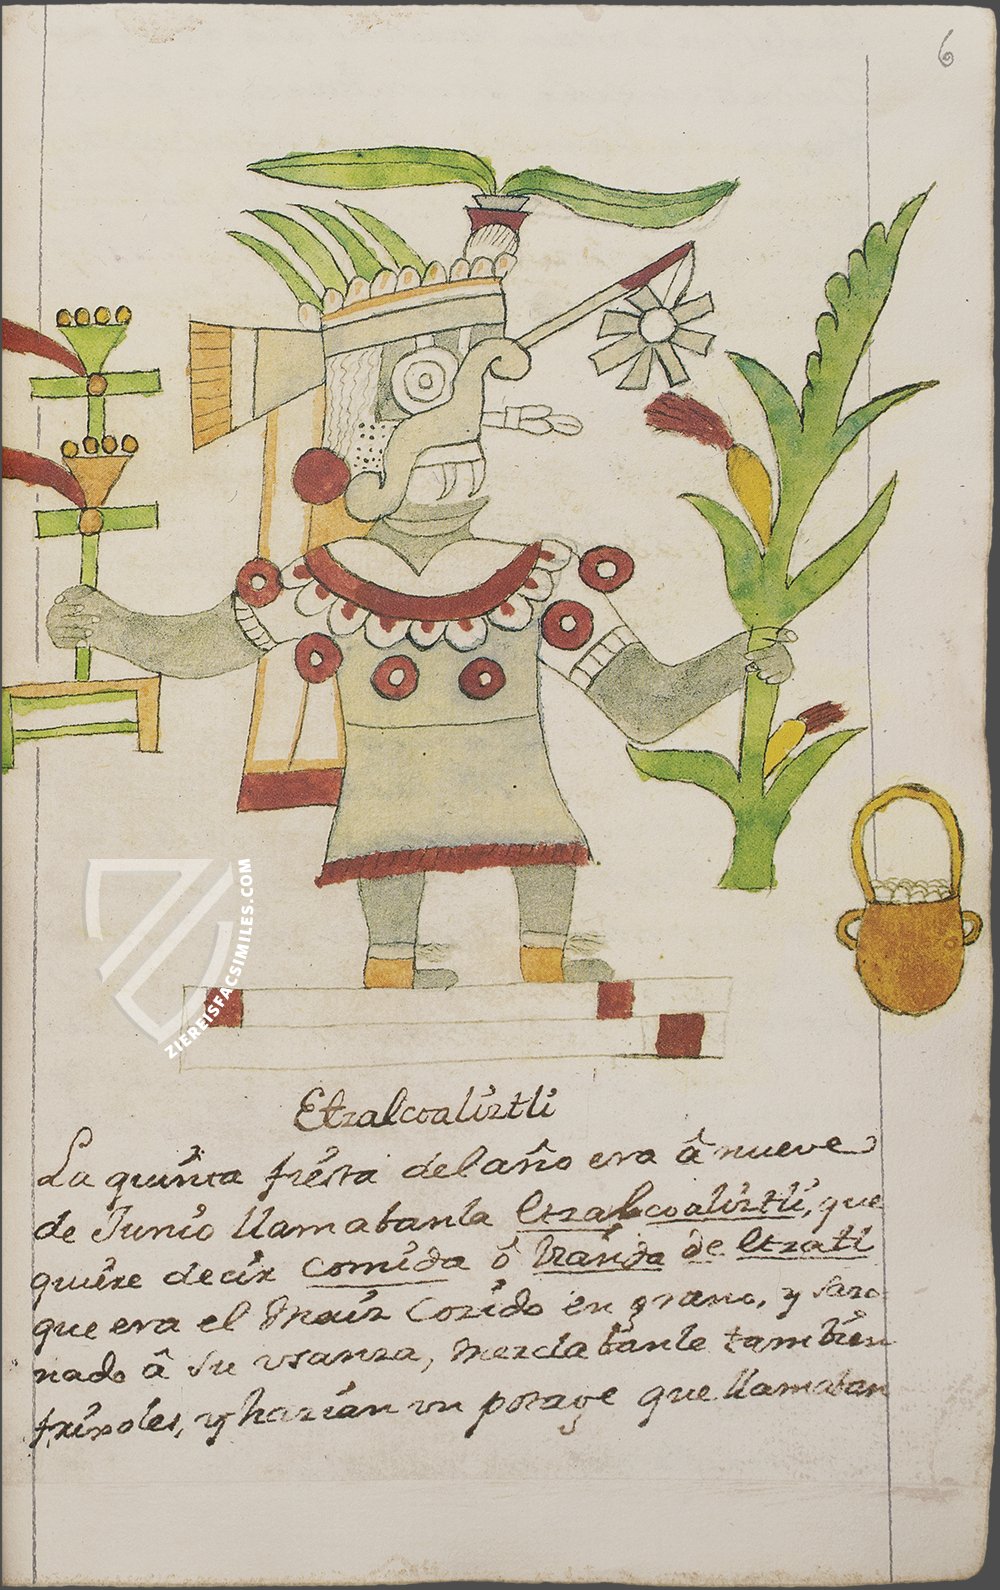 6
ZIEREISFACSIMILES.COM
Etzalcoaliztli
La quinta fiesta del año era â nueve
de Junio llamabanla Etzalcoaliztli, que
quiere decir comida ò vianda de Etzatl
que era el Maiz Cozido en grano, y sazo
nado â su usanza, Mezclabanle tambien
frixoles, y hazian un potage que llamaban